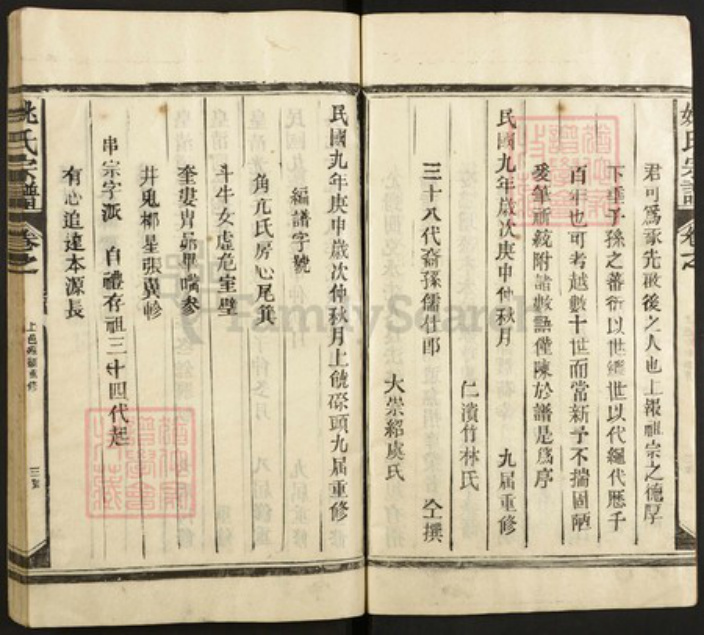 君可為承先啟後之人也上報祖宗之德厚
下垂子孫之蕃衍以世繼世以代繩代歷千
百年也可考越數十世而常新予不揣固陋
爰筆而統附諸數語僅陳於譜是為序
民國九年歲次庚申仲秋月 九届重修
仁濱竹林氏
三十八代裔孫儒仕郎 仝撰
大崇紹虞氏
民國九年庚申歲次仲秋月上虢磜頭九届重修
編譜字號
角亢氐房心尾箕
斗牛女虛危室壁
奎婁胃昴畢嘴參
井鬼柳星張翼軫
串宗字派 自禮存祖三十四代起
有心追遠本源長
姚氏宗譜 卷之
姚氏宗譜 卷之
FamilySearch